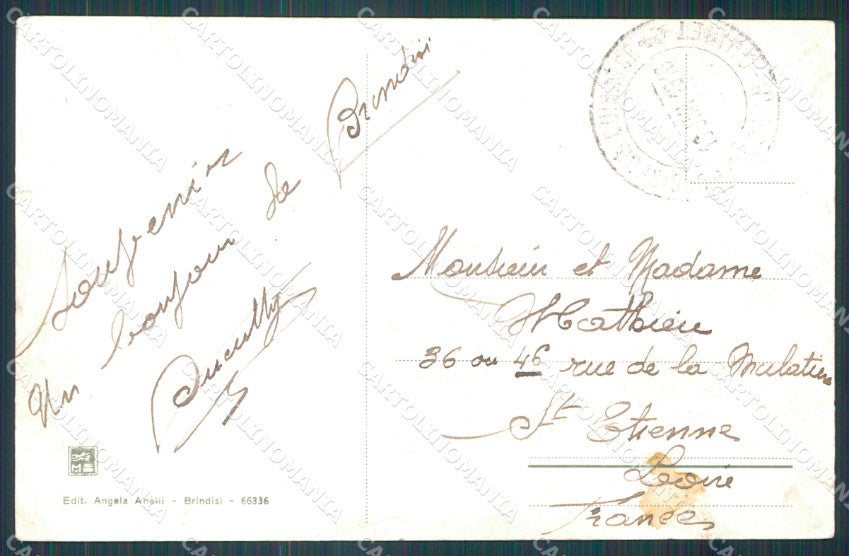 Souvenir
Un bonjour de Brindisi
Monsieur et Madame
Mathieu
36 ou 46 rue de la Mulatière
St Etienne
Loire
France
Edit. Angela Anelli - Brindisi - 66336
CARTOLINOMANIA